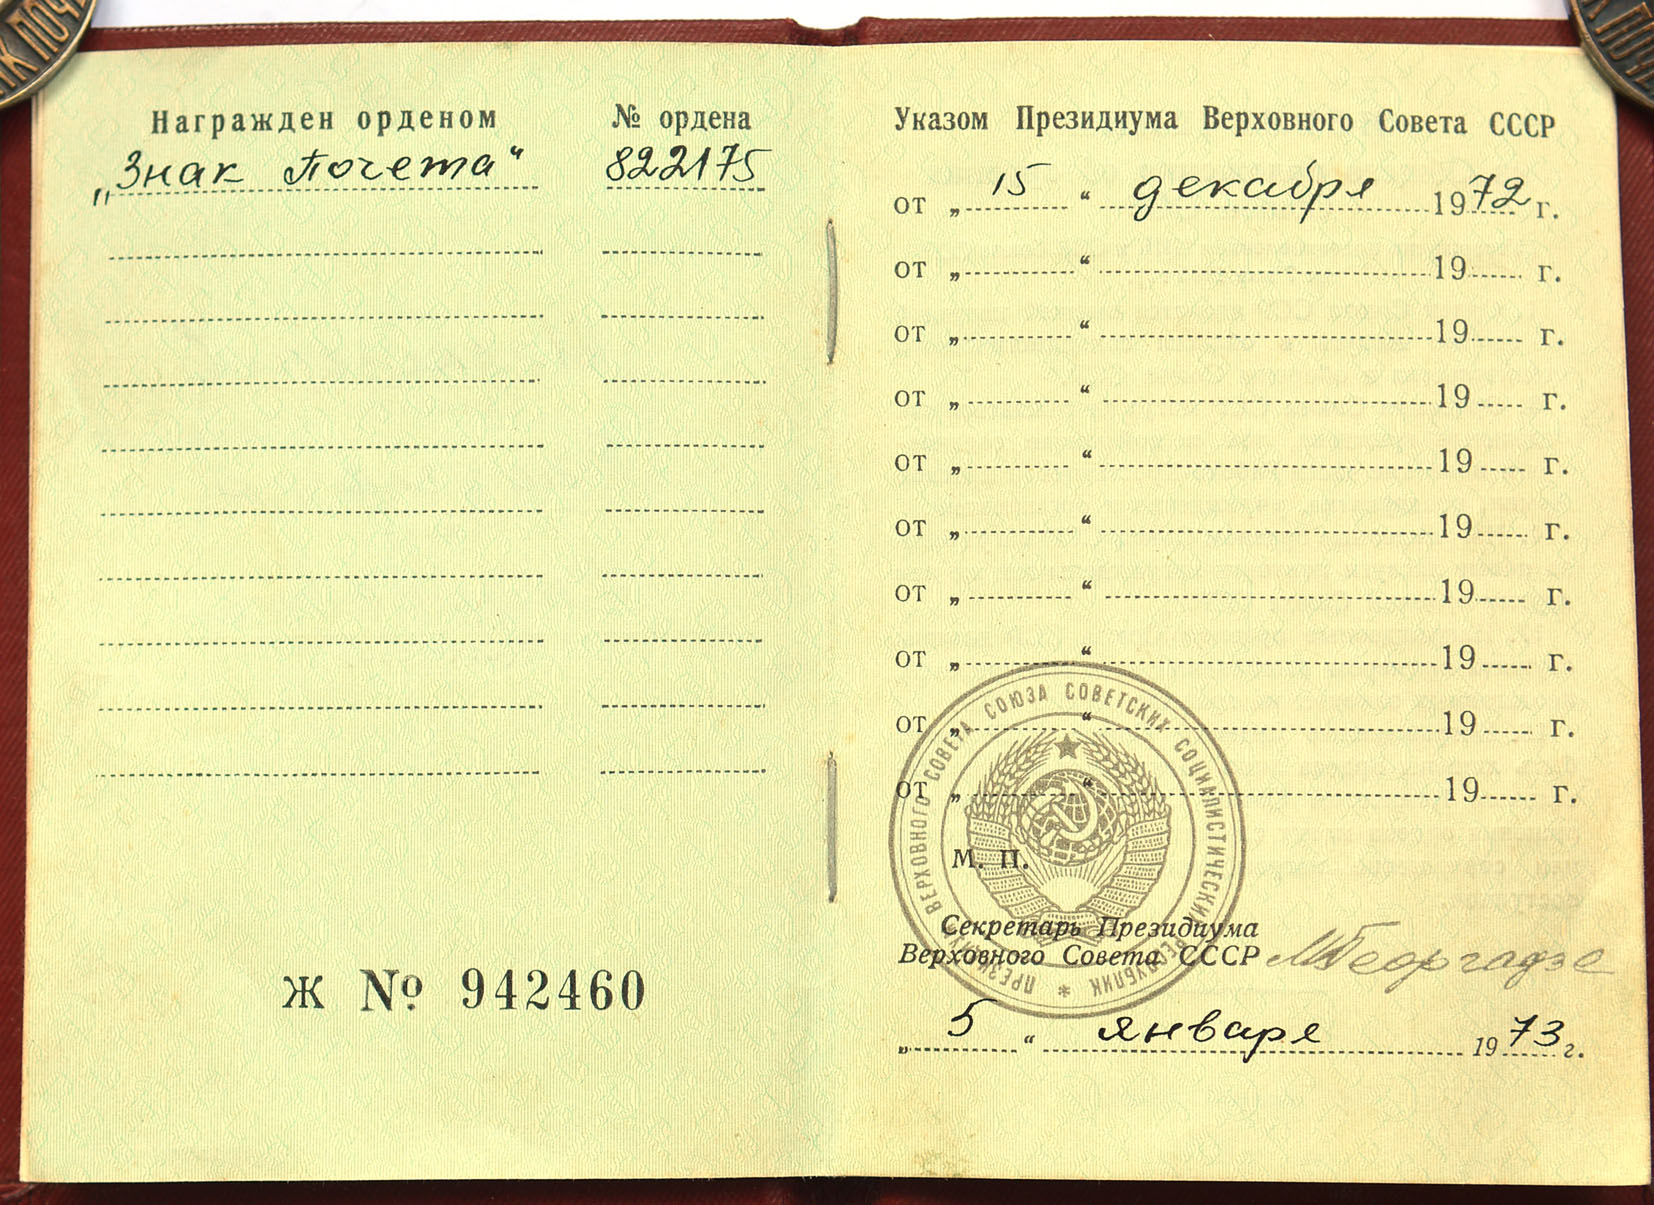 К ПОЧ
К ПОЧ
Награжден орденом
„Знак Почета“
№ ордена
822175
Ж № 942460
Указом Президиума Верховного Совета СССР
от „ 15 “ декабря 1972 г.
от „ “ 19 г.
от „ “ 19 г.
от „ “ 19 г.
от „ “ 19 г.
от „ “ 19 г.
от „ “ 19 г.
от „ “ 19 г.
от „ “ 19 г.
от „ “ 19 г.
М. П.
ПРЕЗИДИУМ ВЕРХОВНОГО СОВЕТА СОЮЗА СОВЕТСКИХ СОЦИАЛИСТИЧЕСКИХ РЕСПУБЛИК *
Секретарь Президиума
Верховного Совета СССР МГеоргадзе
„ 5 “ января 1973 г.